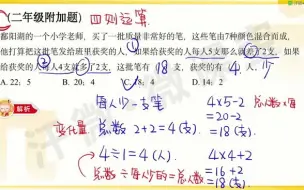 (二年级附加题) 四则运算
鄱阳湖的一个小学老师,买了一批质量非常好的笔,这些笔由7种颜色混合而成,
他打算把这批笔发给班里获奖的人,如果给获奖的人每人5支那么就少了2支,
给获奖的人每人4支就多了2支,这批笔有 18 支,获奖的有 4 人。
A. 22; 5 B. 20; 4 C. 18; 4 D. 14; 2
解析
每人少一支笔 4×5-2
变化量 =20-2
总数 2+2=4(支) =18(支)
4÷1=4(人) 4×4+2
总数÷每人少的=总人数 =16+2
=18(支)